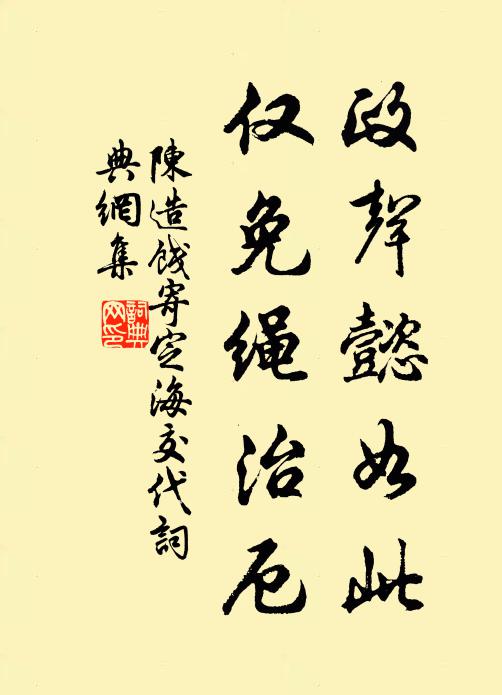 政聲懿如此
仅免绳治厄
陳造餞寄定海交代詞
典網集
詞典
网印